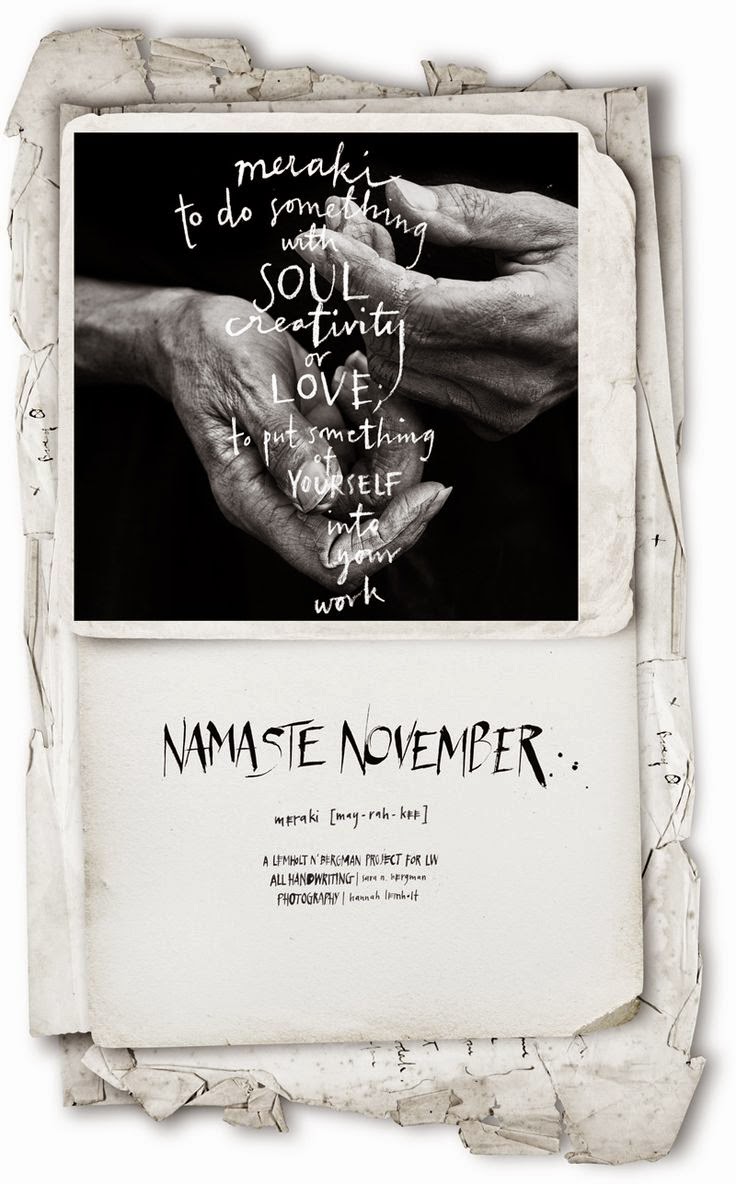 meraki
to do something
with
SOUL
creativity
or
LOVE;
to put something
of
YOURSELF
into
your
work
NAMASTE NOVEMBER...
meraki [may-rah-kee]
A LEMHOLT N' BERGMAN PROJECT FOR LW
ALL HANDWRITING | sara n. bergman
PHOTOGRAPHY | hannah lemholt